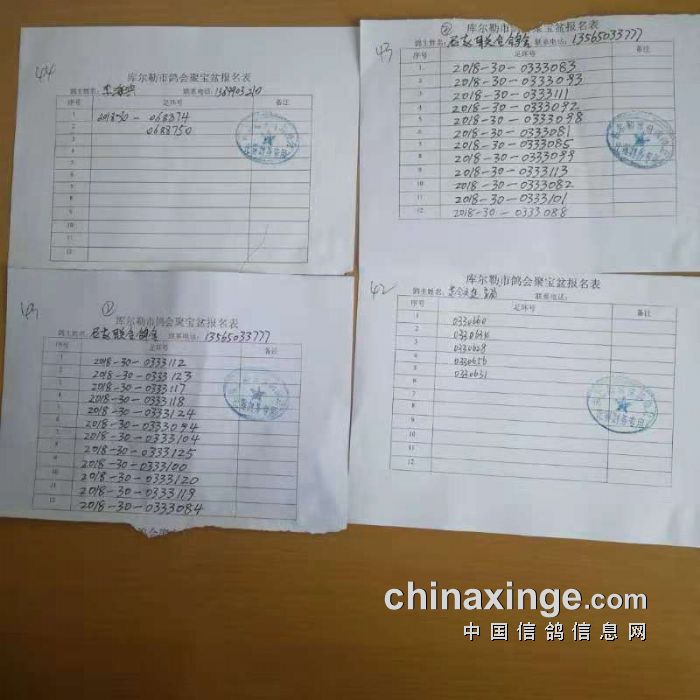 44
库尔勒市鸽会聚宝盆报名表
鸽主姓名: 联系电话:
序号 足环号 备注
1 2018-30-068874
2 0688750
3
4
5
6
7
8
9
10
11
12
43 ②
库尔勒市鸽会聚宝盆报名表
鸽主姓名: 联合鸽舍 联系电话: 13565033777
序号 足环号 备注
1 2018-30-0333083
2 2018-30-0333093
3 2018-30-0333111
4 2018-30-0333092
5 2018-30-0333098
6 2018-30-0333081
7 2018-30-0333085
8 2018-30-0333099
9 2018-30-0333113
10 2018-30-0333082
11 2018-30-0333101
12 2018-30-0333088
43 ①
库尔勒市鸽会聚宝盆报名表
鸽主姓名: 联合鸽舍 联系电话: 13565033777
序号 足环号 备注
1 2018-30-0333112
2 2018-30-0333123
3 2018-30-0333117
4 2018-30-0333118
5 2018-30-0333124
6 2018-30-0333094
7 2018-30-0333104
8 2018-30-0333125
9 2018-30-0333100
10 2018-30-0333120
11 2018-30-0333119
12 2018-30-0333084
42
库尔勒市鸽会聚宝盆报名表
鸽主姓名: 联系电话:
序号 足环号 备注
1 0330660
2 0330630
3 0330628
4 0330656
5 0330631
6
7
8
9
10
11
12
chinaxinge.com
中国信鸽信息网